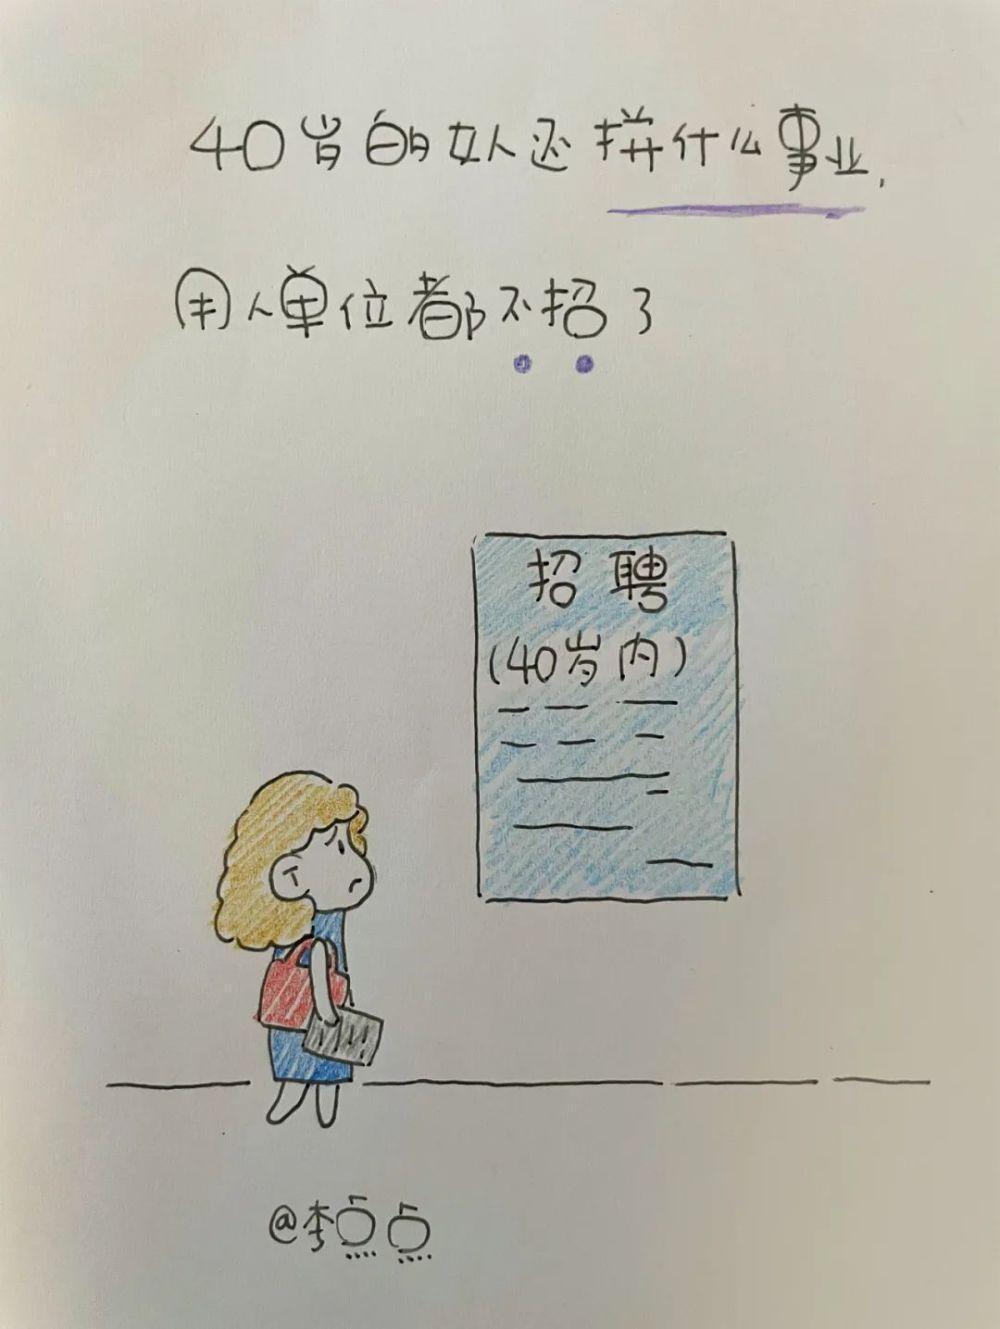 40岁的女人还拼什么事业,
用人单位都不招了
招聘
(40岁内)
@李点点